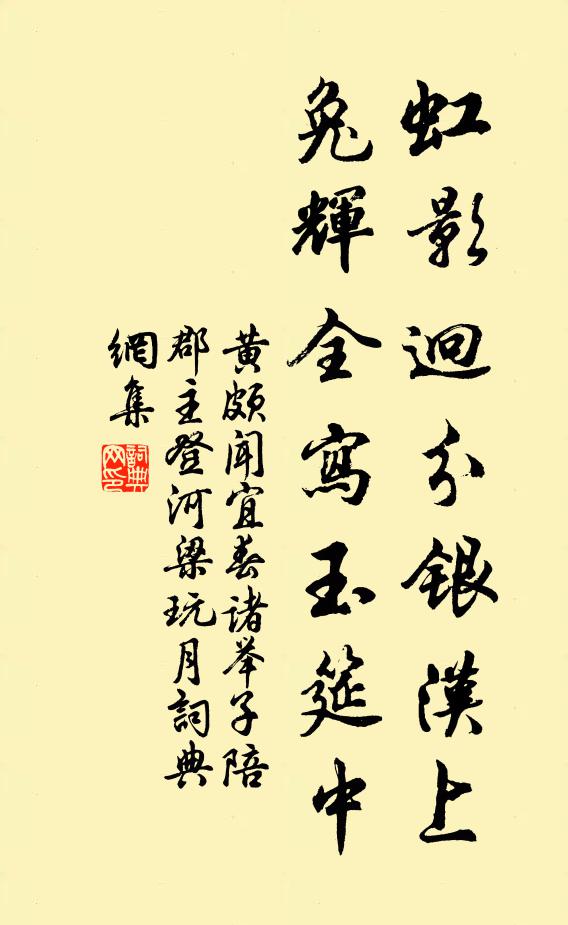 虹影迥分銀漢上
兔輝全寫玉筵中
黃頗聞宜春諸举子陪
郡主登河梁玩月詞典
網集
詞典
网印